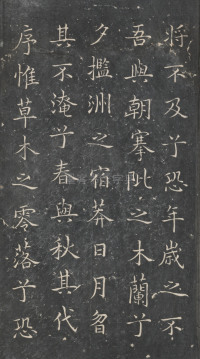 將不及兮恐年歲之不
吾與朝搴阰之木蘭兮
夕擥洲之宿莽日月曶
其不淹兮春與秋其代
序惟草木之零落兮恐